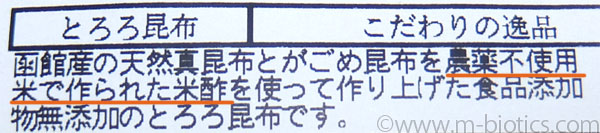 とろろ昆布 こだわりの逸品
函館産の天然真昆布とがごめ昆布を農薬不使用
米で作られた米酢を使って作り上げた食品添加
物無添加のとろろ昆布です。
©www.m-biotics.com